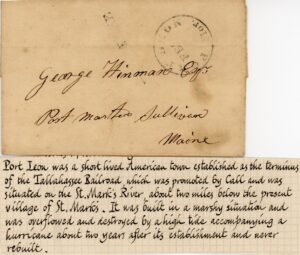 PORT LEON
George Hinman Esqr
Post Master Sullivan
Maine
Port Leon was a short lived American town established as the terminus
of the Tallahassee Railroad which was promoted by Call and was
situated on the St. Mark's River, about two miles below the present
village of St. Marks. It was built in a marshy situation and
was overflowed and destroyed by a high tide accompanying a
hurricane about two years after its establishment and never
rebuilt.